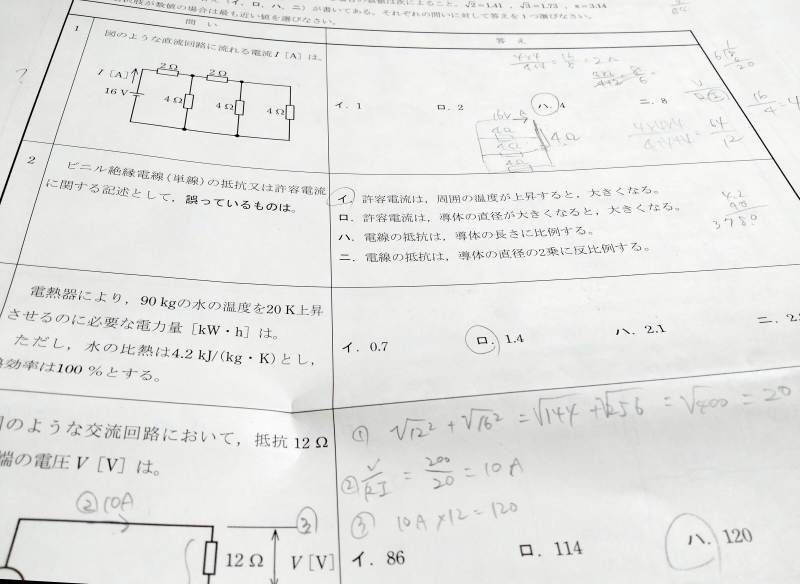 数値の場合は最も近い値を選びなさい。
(イ、ロ、ハ、ニ)が書いてある。それぞれの問いに対して答えを1つ選びなさい。
問 い
答 え
1
図のような直流回路に流れる電流I〔A〕は。
I〔A〕
2Ω
2Ω
16 V
4Ω
4Ω
4Ω
イ. 1
ロ. 2
ハ. 4
ニ. 8
16V
4Ω
4Ω
4Ω
16/4 = 4
64/12
2
ビニル絶縁電線(単線)の抵抗又は許容電流
に関する記述として、誤っているものは。
イ. 許容電流は、周囲の温度が上昇すると、大きくなる。
ロ. 許容電流は、導体の直径が大きくなると、大きくなる。
ハ. 電線の抵抗は、導体の長さに比例する。
ニ. 電線の抵抗は、導体の直径の2乗に反比例する。
4.2
90
3780
電熱器により、90 kgの水の温度を20 K上昇
させるのに必要な電力量〔kW・h〕は。
ただし、水の比熱は4.2 kJ/(kg・K)とし、
効率は100 %とする。
イ. 0.7
ロ. 1.4
ハ. 2.1
ニ. 2.
のような交流回路において、抵抗 12 Ω
端の電圧V〔V〕は。
② 10A
③
12 Ω
V〔V〕
① √12² + √16² = √144 + √256 = √400 = 20
② V/RI = 200/20 = 10A
③ 10A×12=120
イ. 86
ロ. 114
ハ. 120